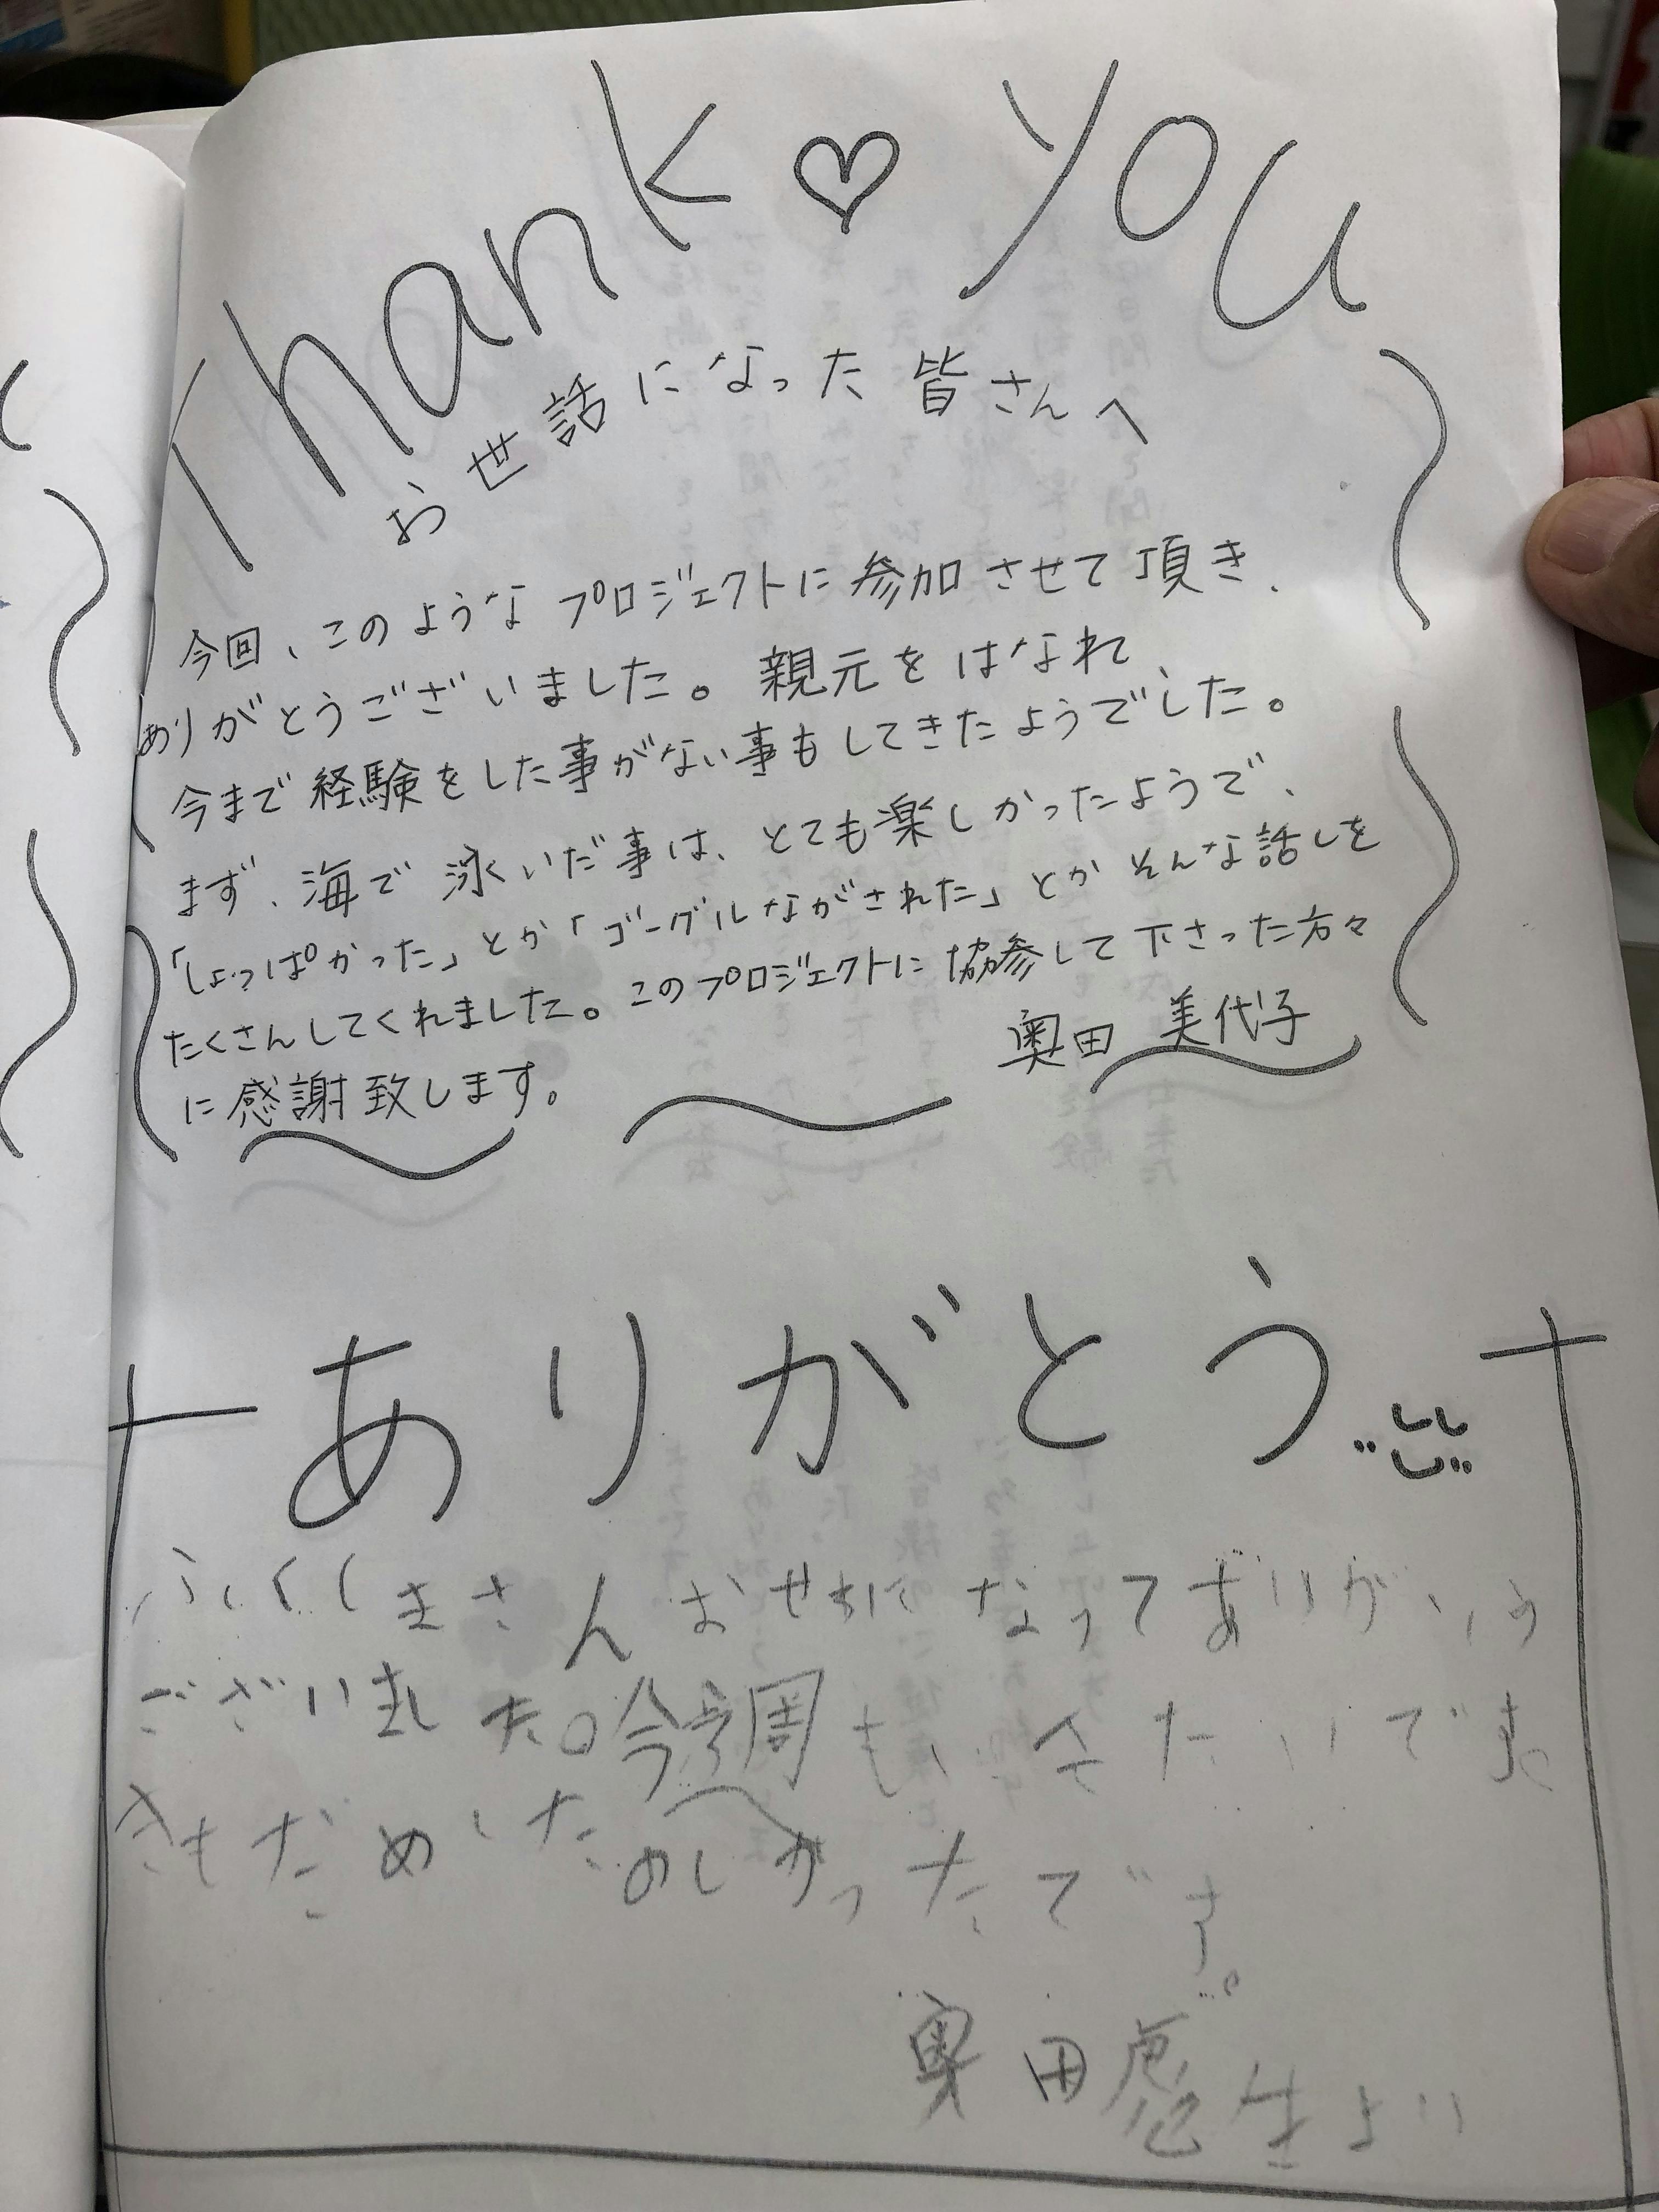 Thank ♡ you
お世話になった皆さんへ
今回、このようなプロジェクトに参加させて頂き、
ありがとうございました。親元をはなれ、
今まで経験をした事がない事もしてきたようでした。
まず、海で泳いだ事は、とても楽しかったようで、
「しょっぱかった」とか「ゴーグルながされた」とかそんな話しを
たくさんしてくれました。このプロジェクトに協参して下さった方々
に感謝致します。
奥田 美代子
ありがとう
ふくしまさんおせわになってありがとう
ございました。今周もいきたいです
きもだめしたのしかったです。
奥田 生より